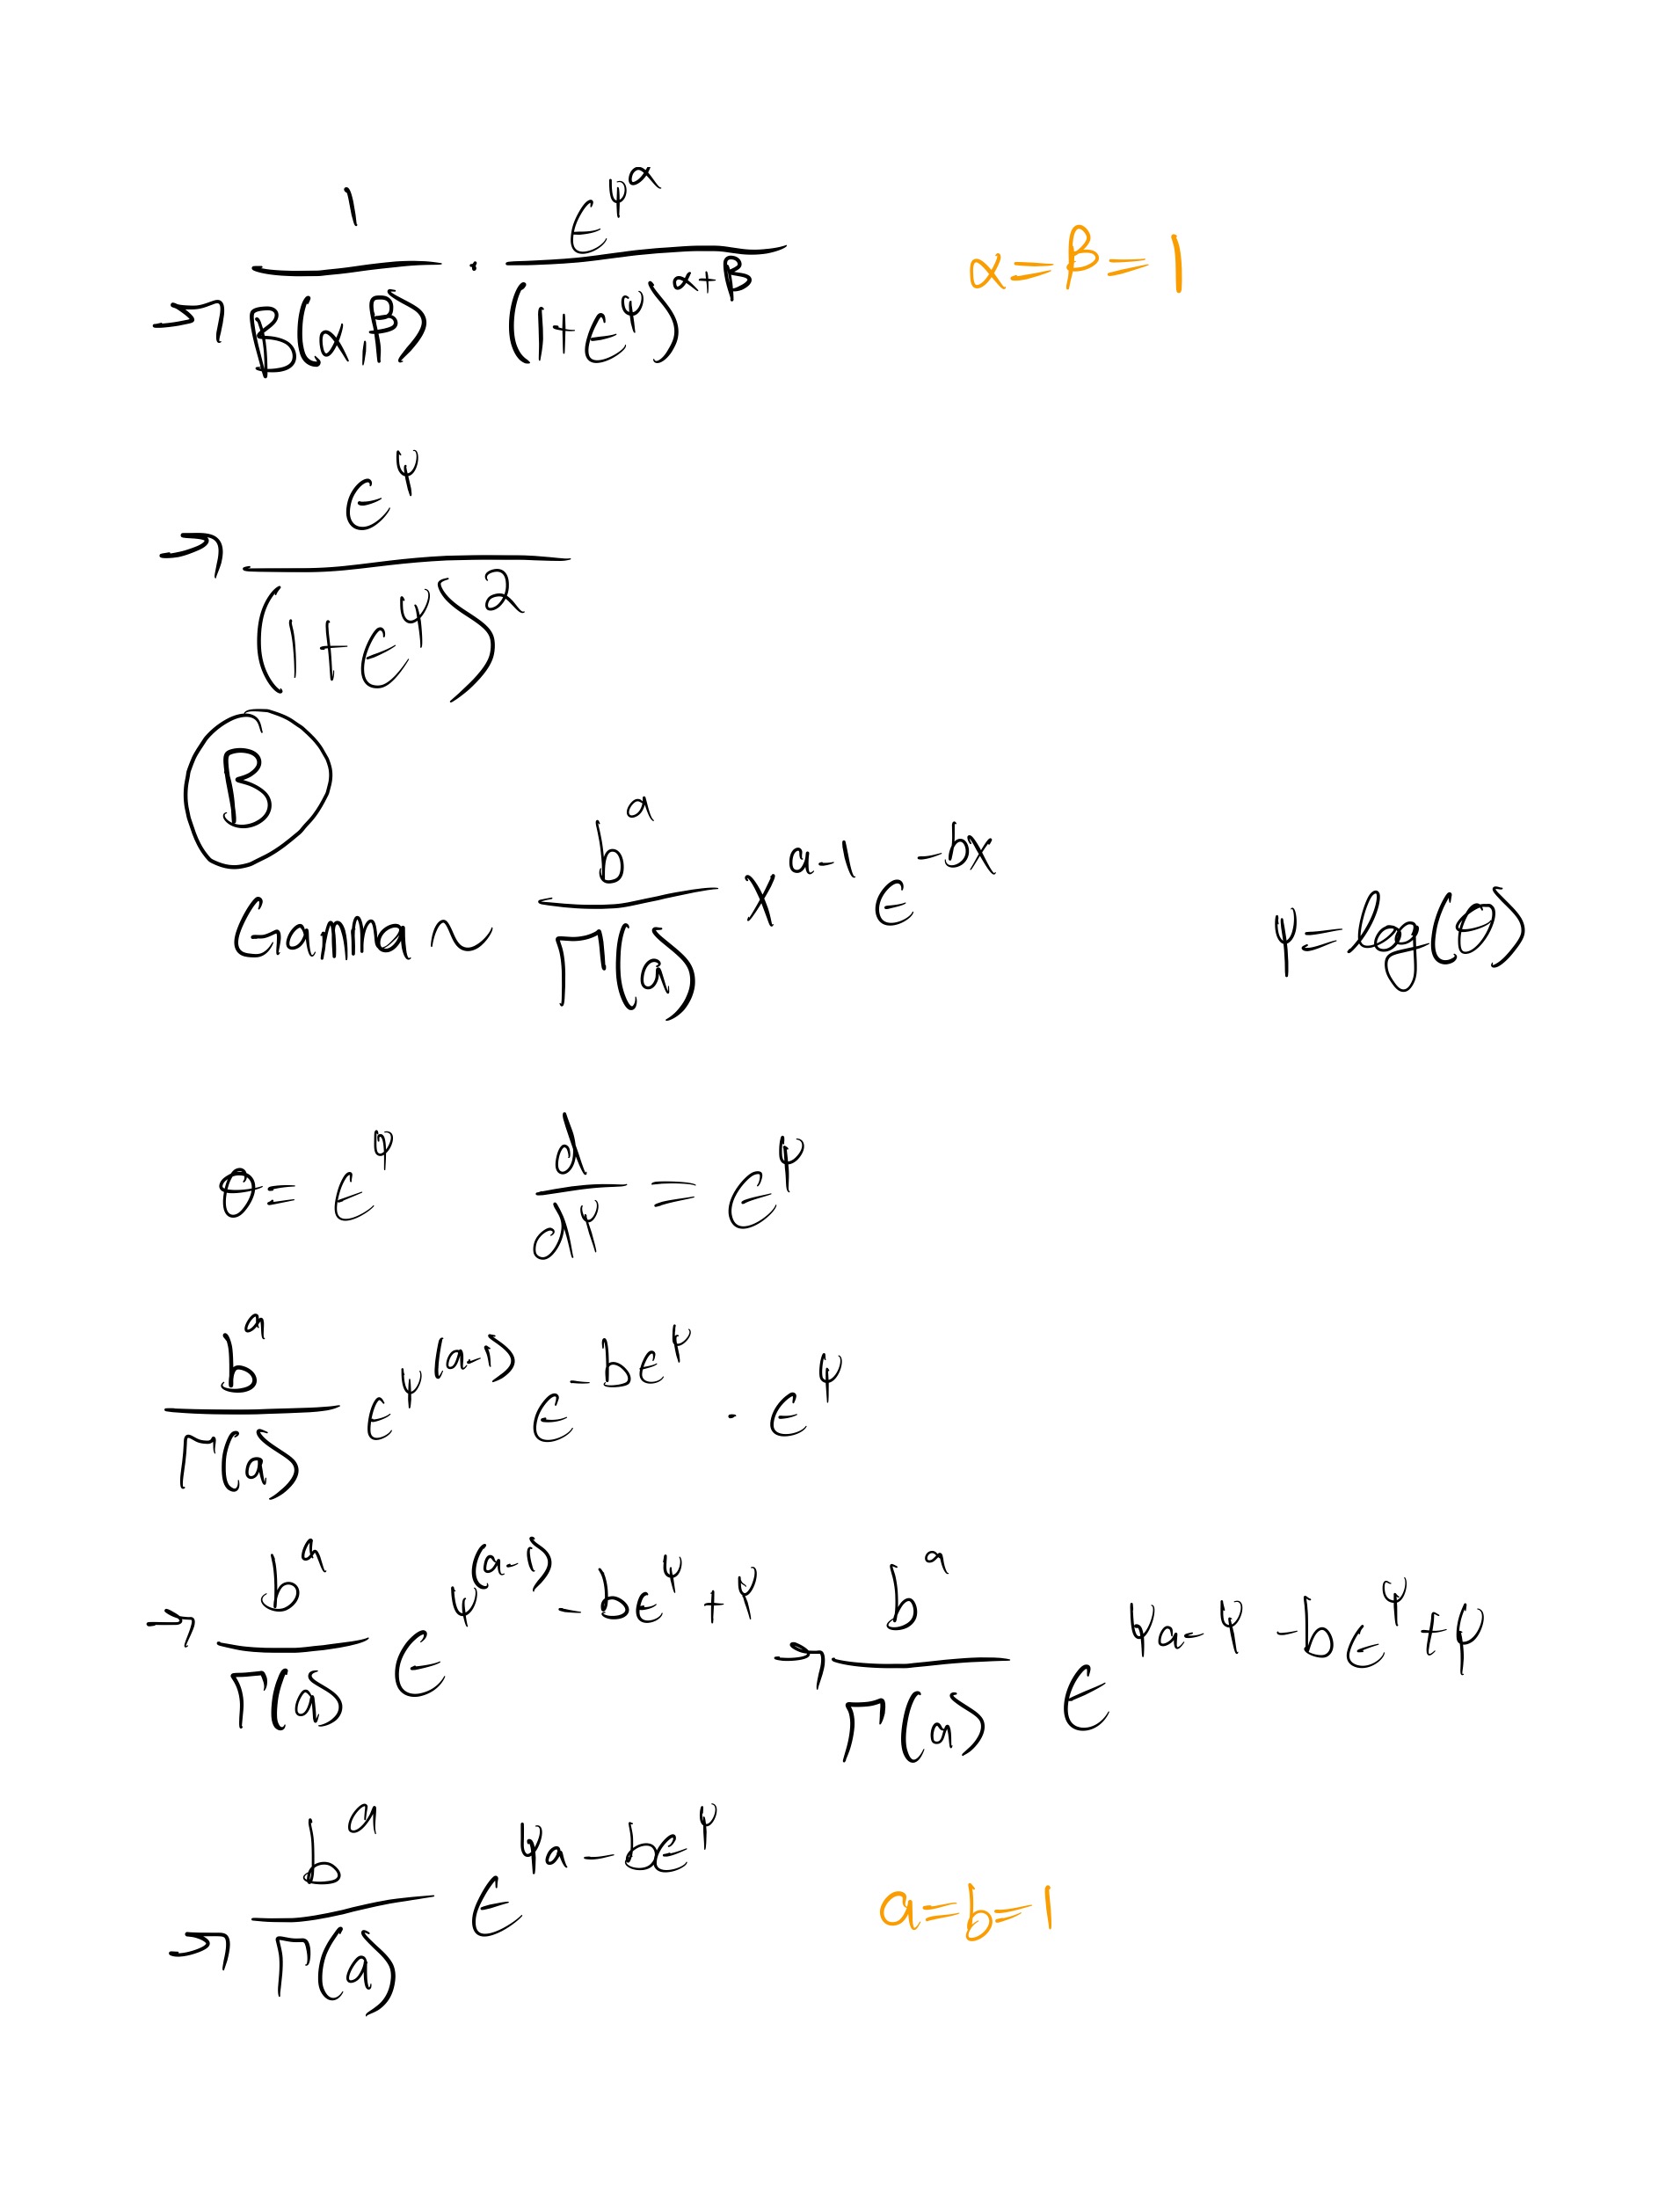 → 1/B(α,β) · e^{ψα}/(1+e^ψ)^{α+β} α=β=1
→ e^ψ/(1+e^ψ)^2
B
Gamma ~ b^a/Γ(a) x^{a-1} e^{-bx} ψ=log(θ)
θ= e^ψ d/dψ = e^ψ
b^a/Γ(a) e^{ψ(a-1)} e^{-be^ψ} · e^ψ
→ b^a/Γ(a) e^{ψ(a-1) - be^ψ + ψ} → b^a/Γ(a) e^{ψa - ψ - be^ψ + ψ}
→ b^a/Γ(a) e^{ψa - be^ψ} a=b=1